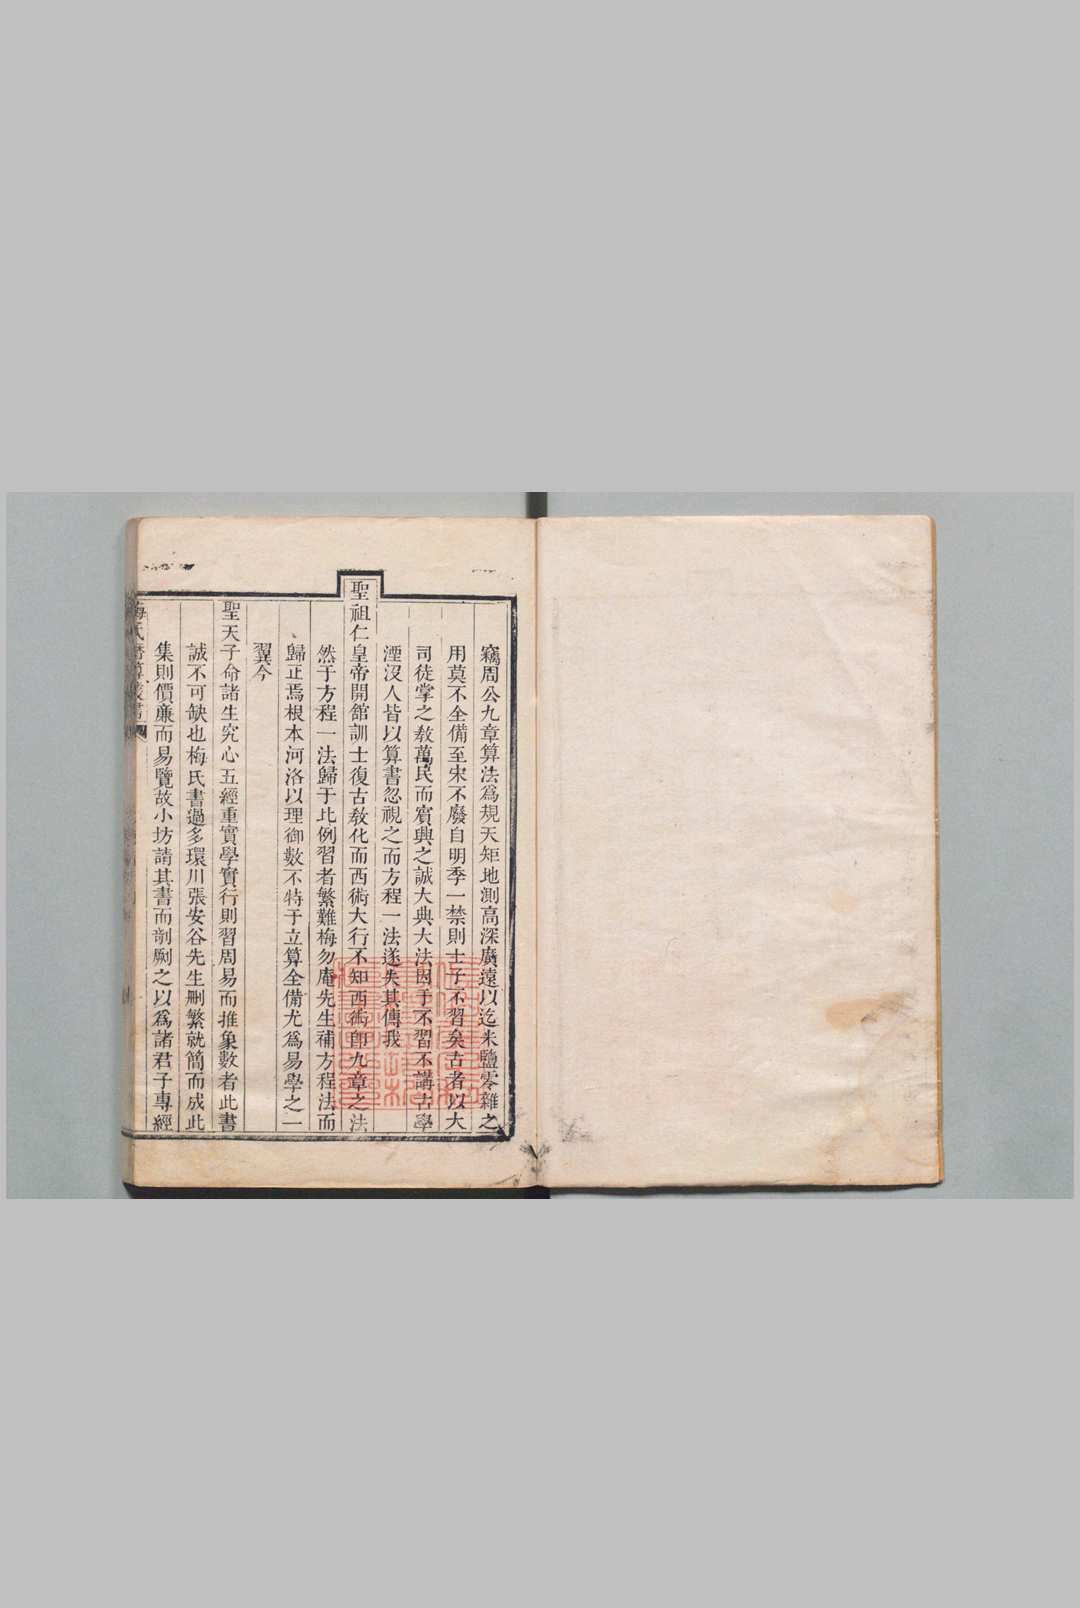 竊周公九章算法爲規天矩地測高深廣遠以迄米鹽零雜之
用莫不全備至宋不廢自明季一禁則士子不習矣古者以大
司徒掌之敎萬民而賓興之誠大典大法因于不習不講古學
湮沒人皆以算書忽視之而方程一法遂失其傳我
聖祖仁皇帝開館訓士復古敎化而西術大行不知西術卽九章之法
然于方程一法歸于比例習者繁難梅勿庵先生補方程法而
歸正焉根本河洛以理御數不特于立算全備尤爲易學之一
翼今
聖天子命諸生究心五經重實學實行則習周易而推象數者此書
誠不可缺也梅氏書過多環川張安谷先生刪繁就簡而成此
集則價廉而易覽故小坊請其書而剞劂之以爲諸君子專經
梅氏曆算叢書